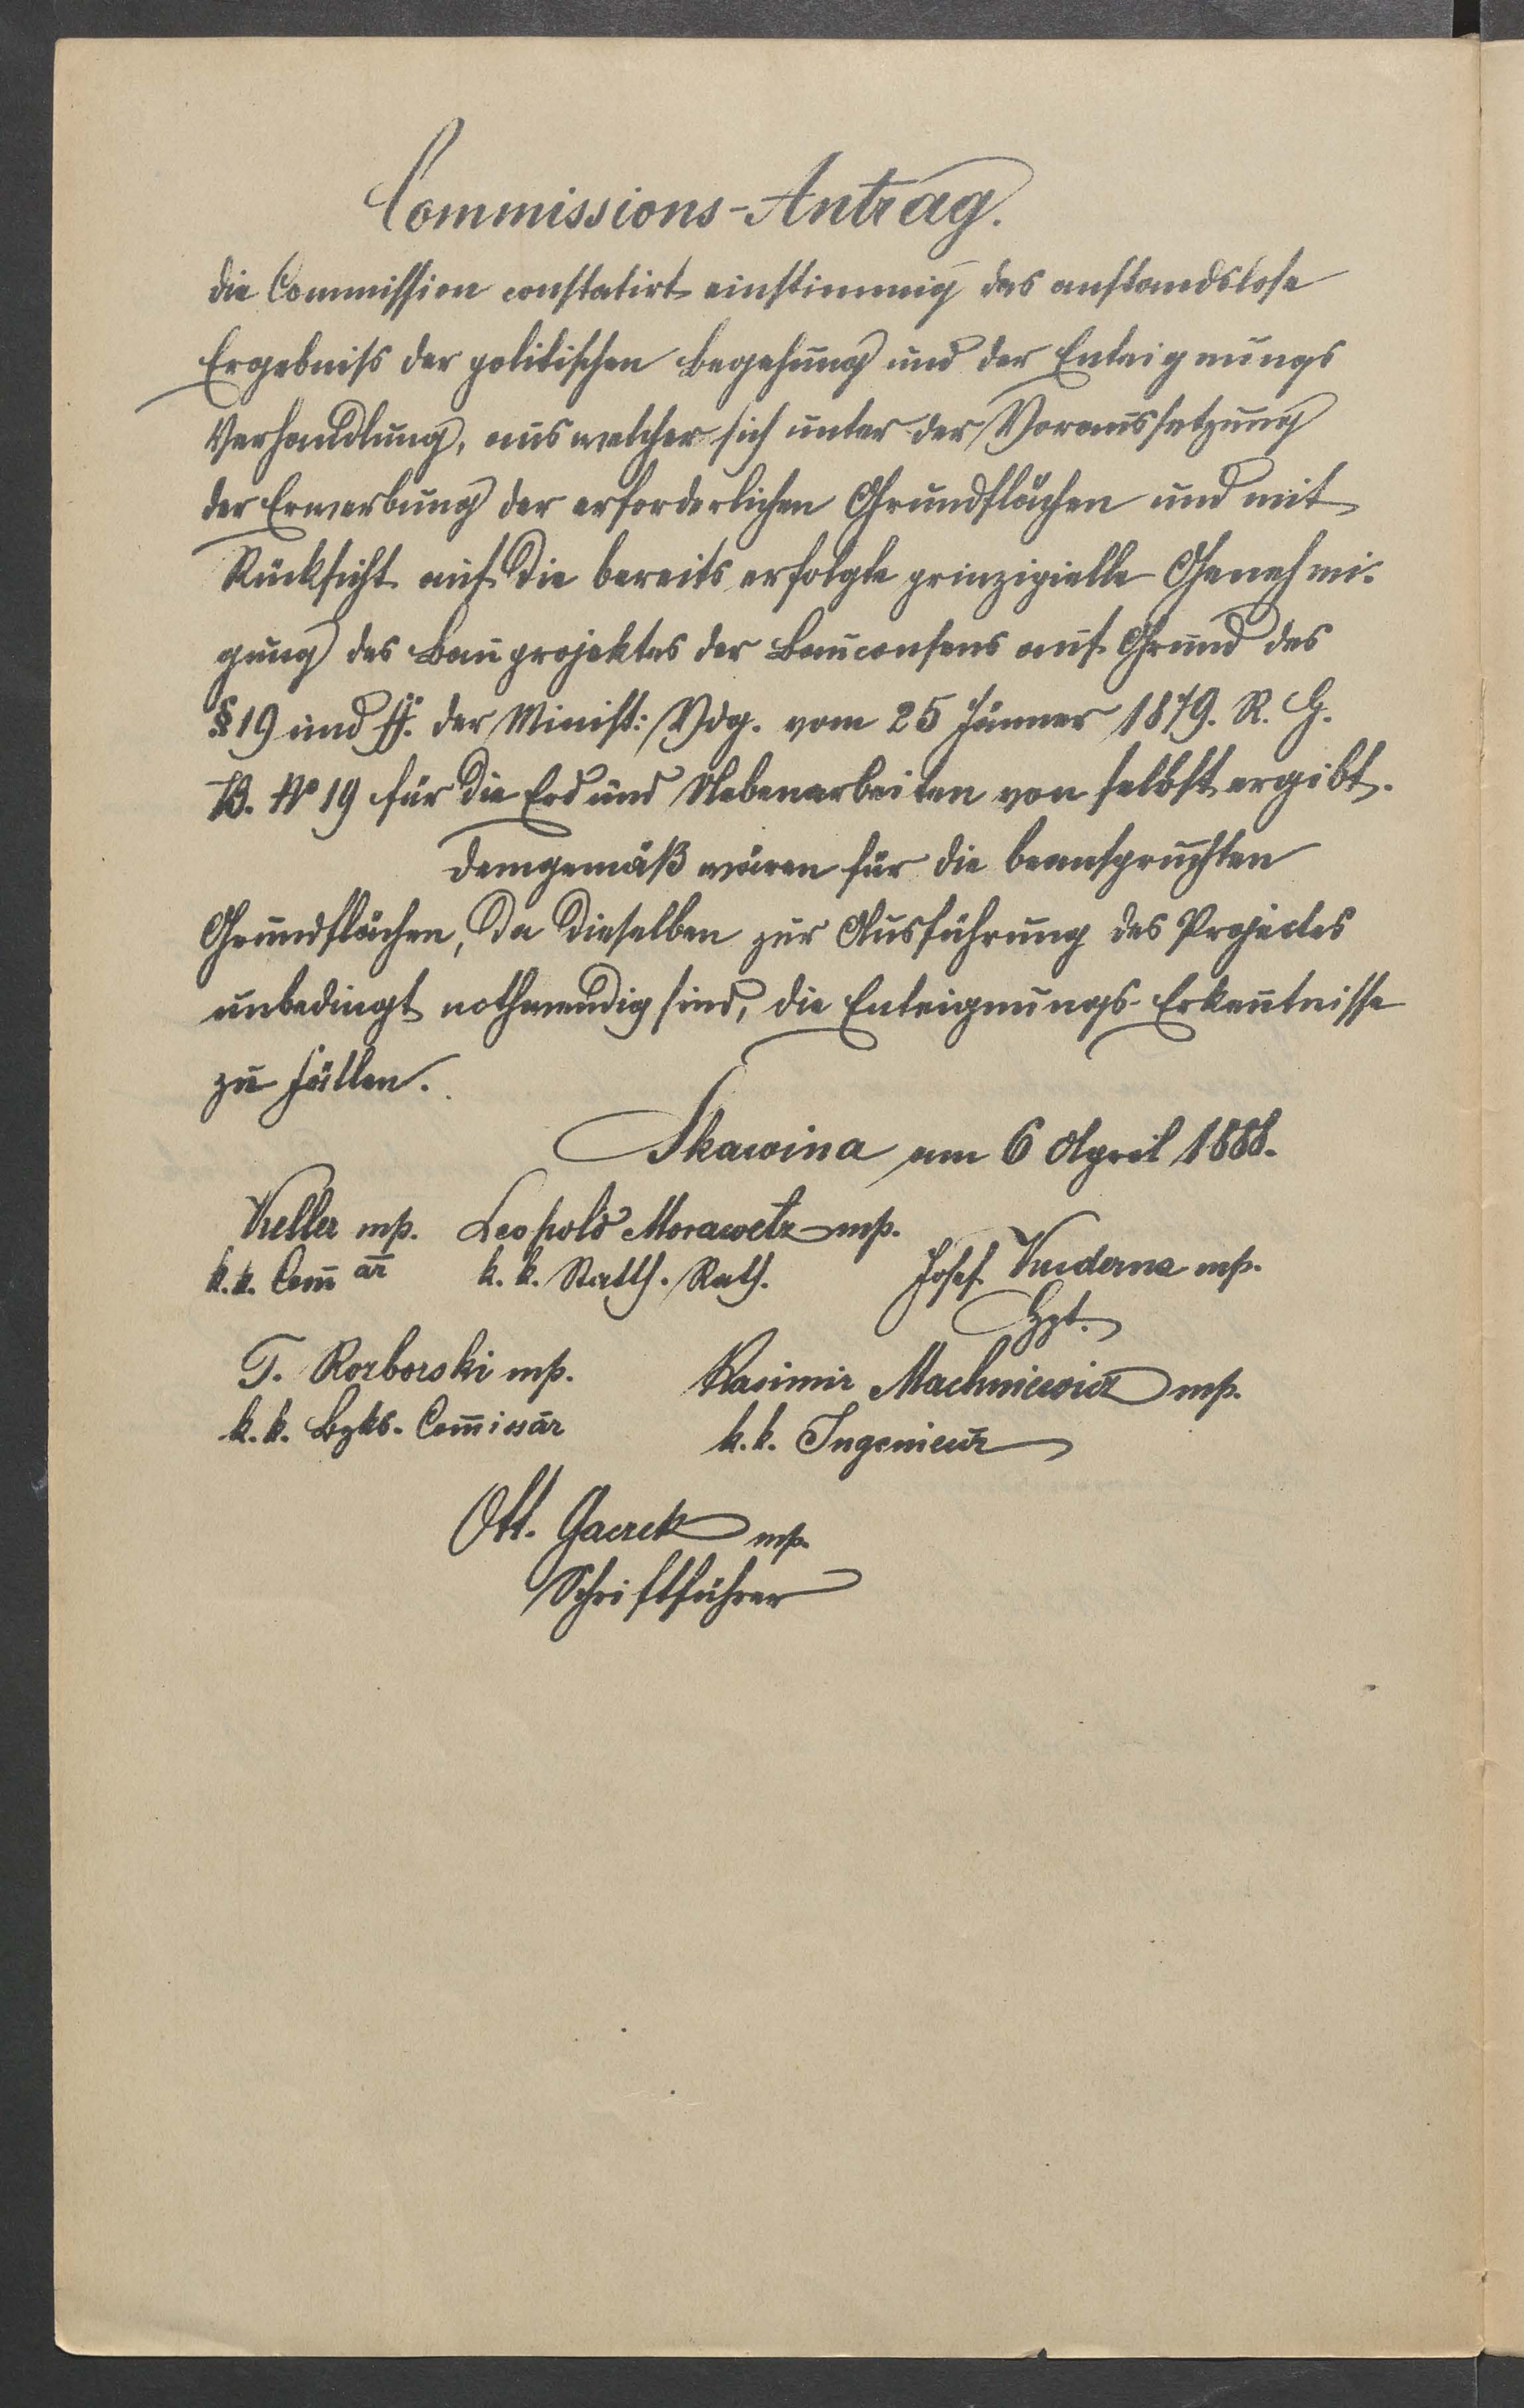 Commissions-Antrag.
Die Commission constatirt einstimmig das anstandslose
Ergebniss der politischen Begehung und der Enteignungs
Verhandlung, aus welcher sich unter der Voraussetzung
der Erwerbung der erforderlichen Grundflächen und mit
Rücksicht auf die bereits erfolgte prinzipielle Genehmi-
gung des Bauprojektes der Bauconsens auf Grund des
§ 19 und ff. der Minist: Vdg. vom 25 Jänner 1879. R. G.
B. No 19 für die Erd und Nebenarbeiten von selbst ergibt.
Demgemäß wären für die beanspruchten
Grundflächen, da dieselben zur Ausführung des Projectes
unbedingt nothwendig sind, die Enteignungs-Erkenntnisse
zu fällen.
Skawina am 6 April 1888.
Keller mp. Leopold Morawetz mp.
k.k. Com̄ är k. k. Statth. Rath. Josef mp.
Hpt.
T. mp. Kasimir Machniewicz mp.
k. k. Bzks. Com̄issär k. k. Ingenieur
Ott. mp.
Schriftführer